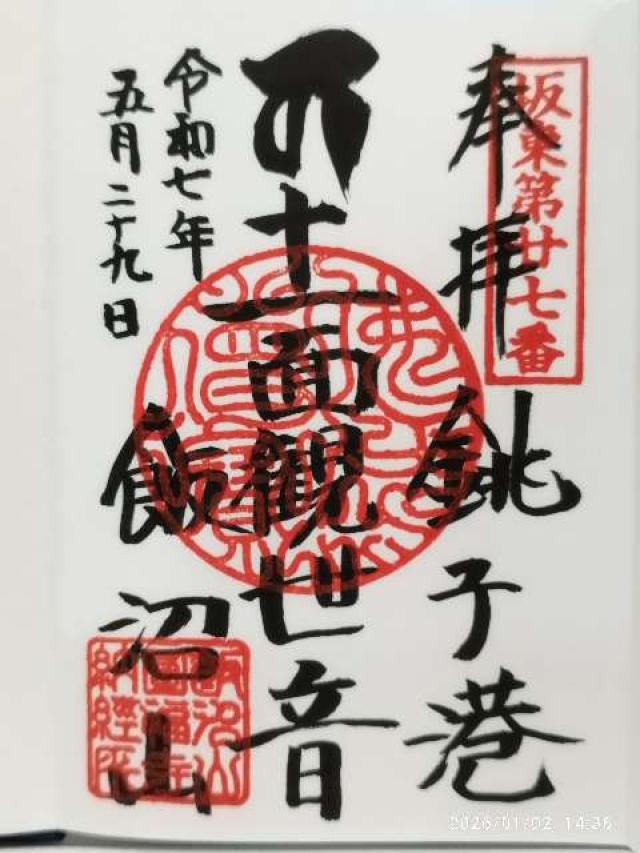 坂東第廿七番
奉拝
銚子港
十一面観世音
令和七年
五月二十九日
飯沼山
飯沼山
圓福寺
納經所
2026/01/02 14:36